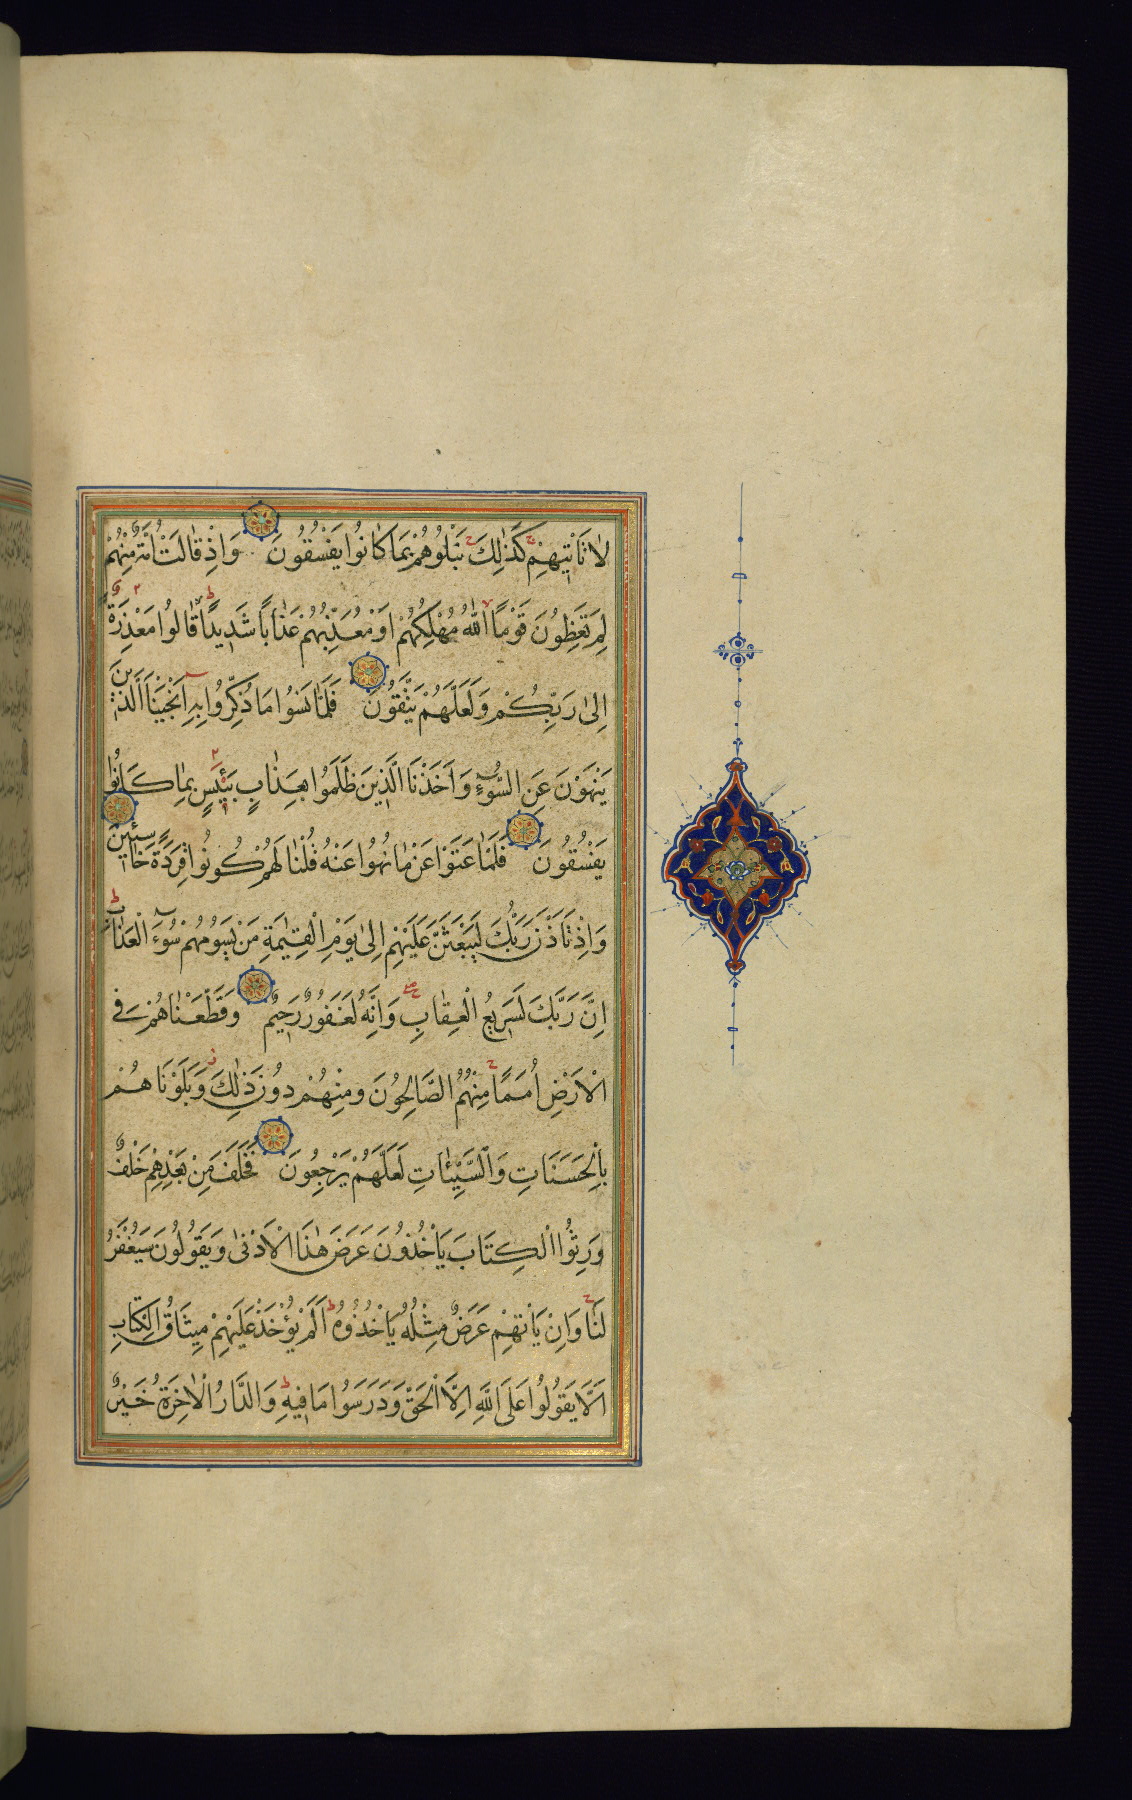 لَا تَأْتِيهِمْ كَذٰلِكَ نَبْلُوهُمْ بِمَا كَانُوا يَفْسُقُونَ وَاِذْ قَالَتْ اُمَّةٌ مِنْهُمْ
لِمَ تَعِظُونَ قَوْمًا اللّٰهُ مُهْلِكُهُمْ اَوْ مُعَذِّبُهُمْ عَذَابًا شَدِيدًا قَالُوا مَعْذِرَةً
اِلٰى رَبِّكُمْ وَلَعَلَّهُمْ يَتَّقُونَ فَلَمَّا نَسُوا مَا ذُكِّرُوا بِهِ اَنْجَيْنَا الَّذِينَ
يَنْهَوْنَ عَنِ السُّوءِ وَاَخَذْنَا الَّذِينَ ظَلَمُوا بِعَذَابٍ بَئِيسٍ بِمَا كَانُوا
يَفْسُقُونَ فَلَمَّا عَتَوْا عَنْ مَا نُهُوا عَنْهُ قُلْنَا لَهُمْ كُونُوا قِرَدَةً خَاسِئِينَ
وَاِذْ تَاَذَّنَ رَبُّكَ لَيَبْعَثَنَّ عَلَيْهِمْ اِلٰى يَوْمِ الْقِيٰمَةِ مَنْ يَسُومُهُمْ سُوءَ الْعَذَابِ
اِنَّ رَبَّكَ لَسَرِيعُ الْعِقَابِ وَاِنَّهُ لَغَفُورٌ رَحِيمٌ وَقَطَّعْنَاهُمْ فِي
الْاَرْضِ اُمَمًا مِنْهُمُ الصَّالِحُونَ وَمِنْهُمْ دُونَ ذٰلِكَ وَبَلَوْنَاهُمْ
بِالْحَسَنَاتِ وَالسَّيِّئَاتِ لَعَلَّهُمْ يَرْجِعُونَ فَخَلَفَ مِنْ بَعْدِهِمْ خَلْفٌ
وَرِثُوا الْكِتَابَ يَأْخُذُونَ عَرَضَ هٰذَا الْاَدْنٰى وَيَقُولُونَ سَيُغْفَرُ
لَنَا وَاِنْ يَأْتِهِمْ عَرَضٌ مِثْلُهُ يَأْخُذُوهُ اَلَمْ يُؤْخَذْ عَلَيْهِمْ مِيثَاقُ الْكِتَابِ
اَنْ لَا يَقُولُوا عَلَى اللّٰهِ اِلَّا الْحَقَّ وَدَرَسُوا مَا فِيهِ وَالدَّارُ الْاٰخِرَةُ خَيْرٌ